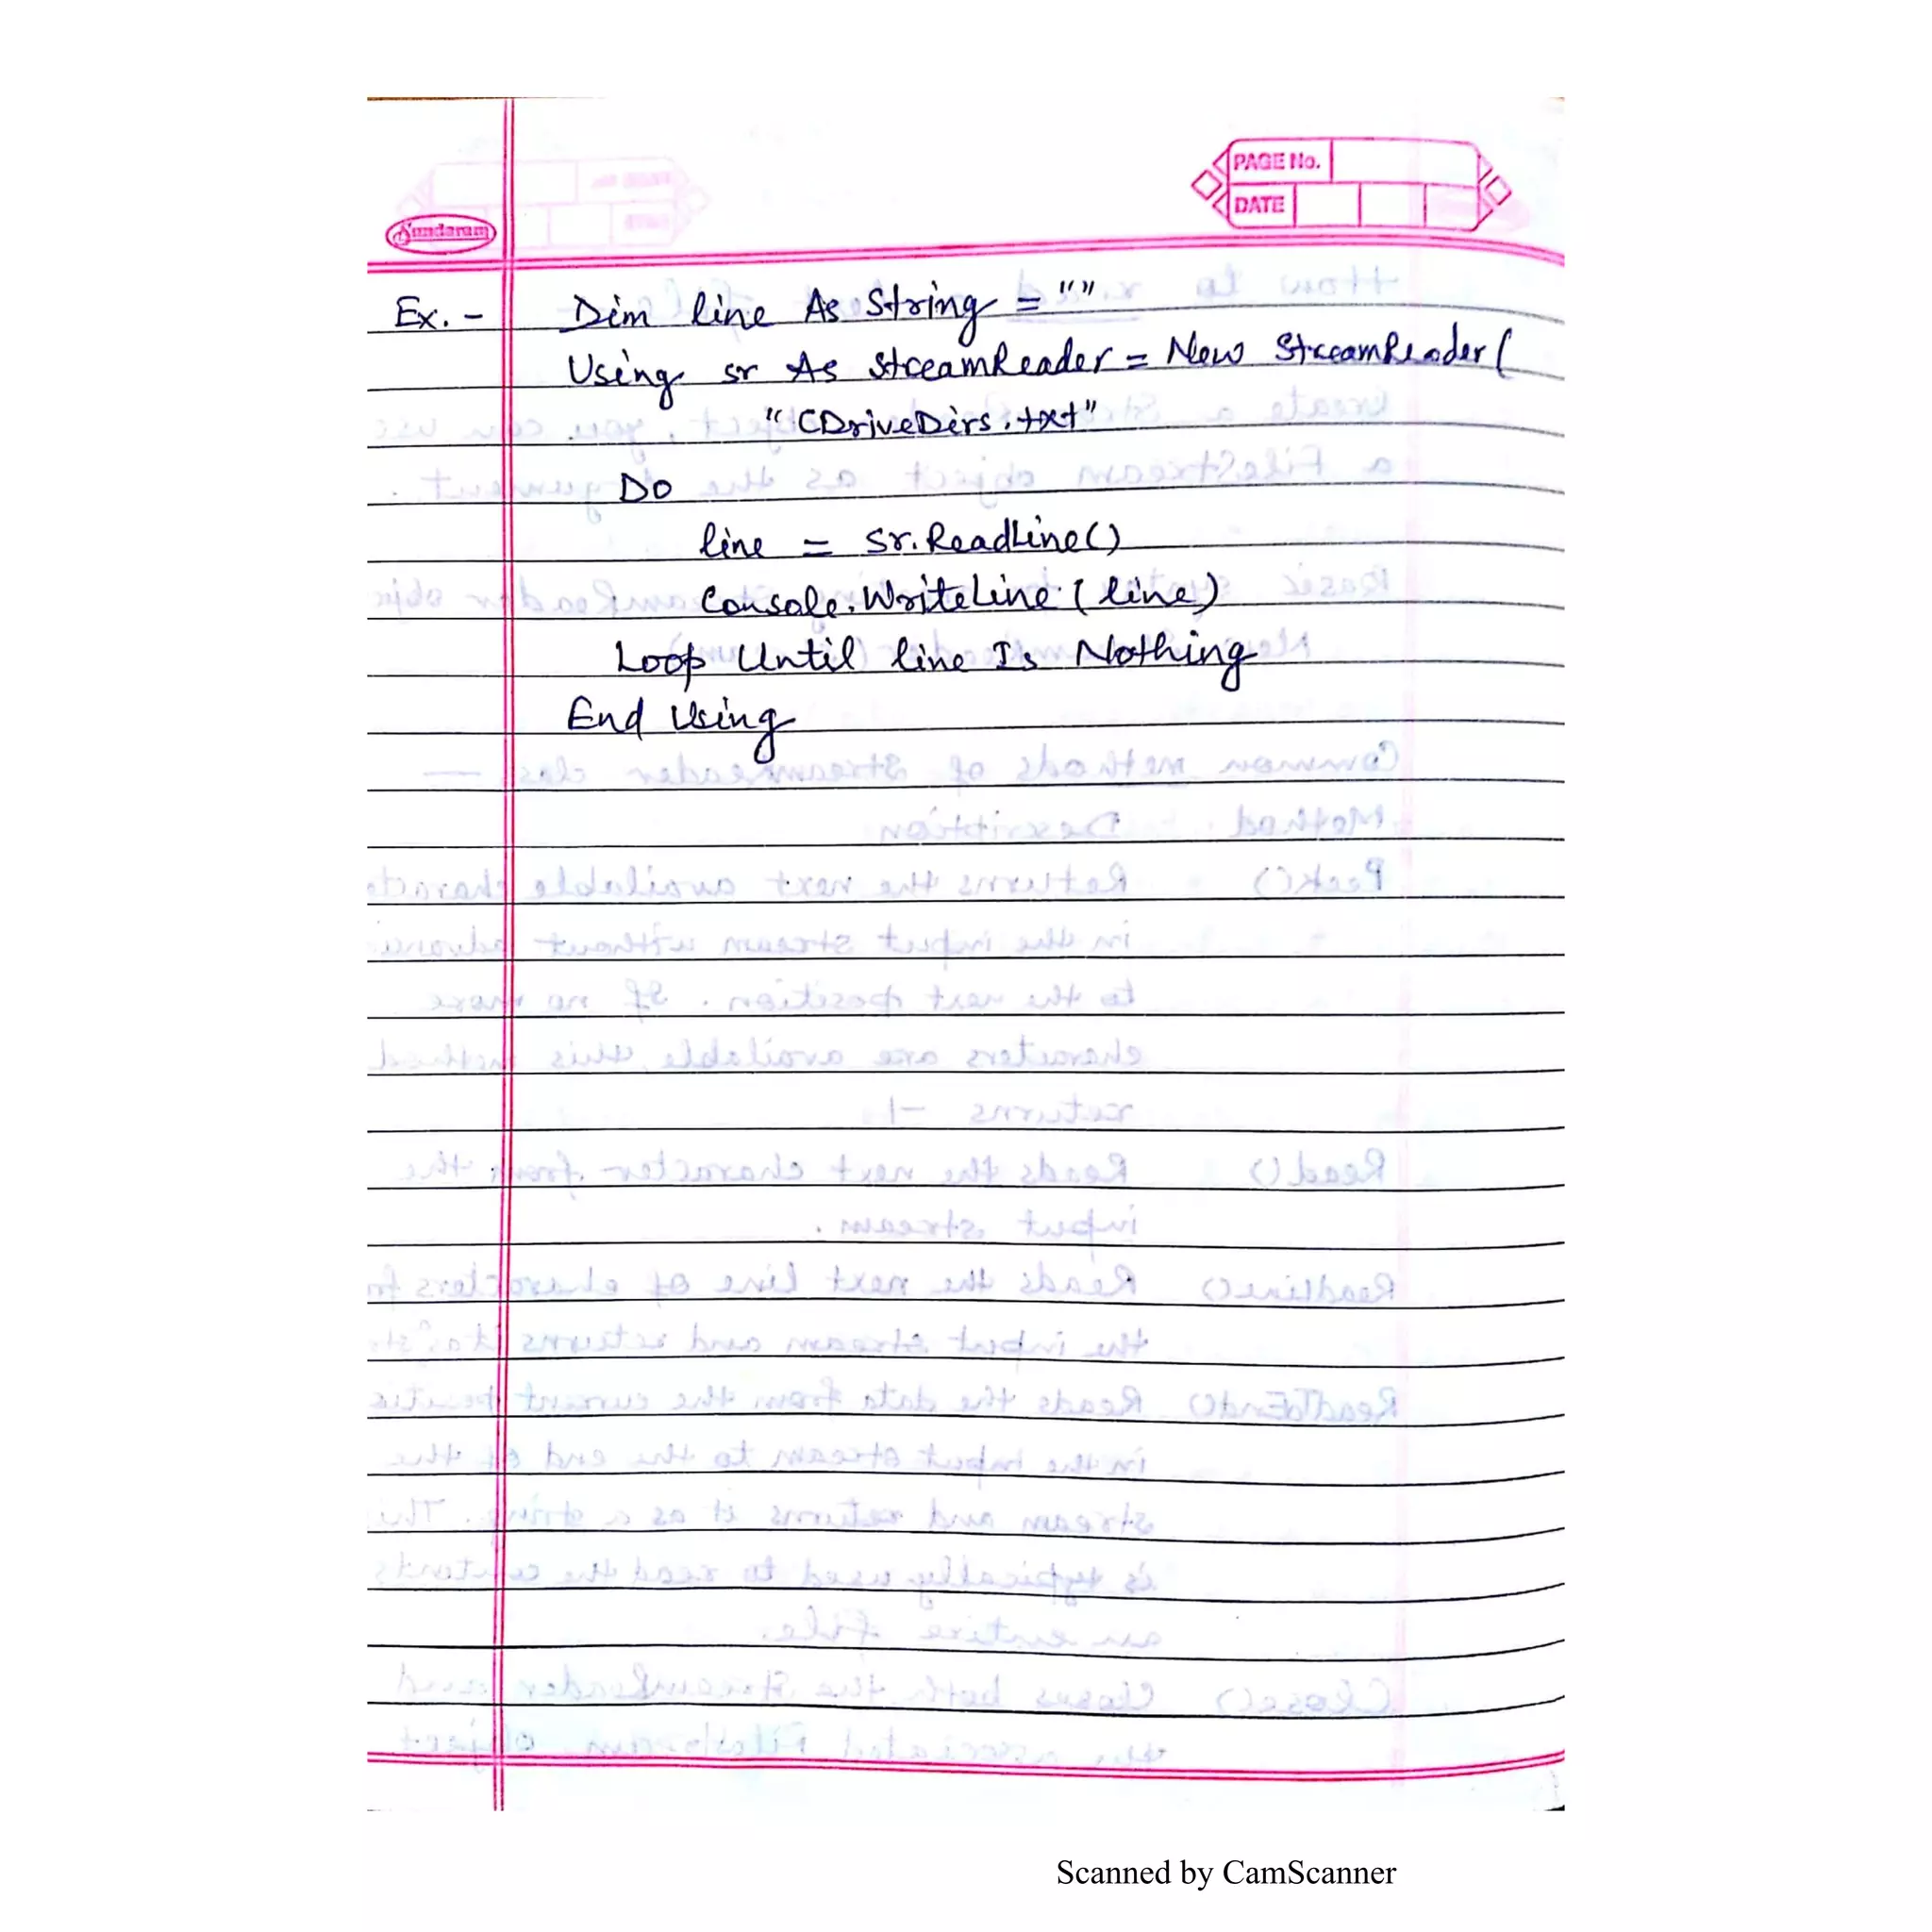 PAGE No.
DATE
Sundaram
Ex. - Dim line As String = ""
Using sr As StreamReader = New StreamReader(
"CDriveDirs.txt"
Do
line = Sr.ReadLine()
Console.WriteLine(line)
Loop Until line Is Nothing
End Using
Scanned by CamScanner